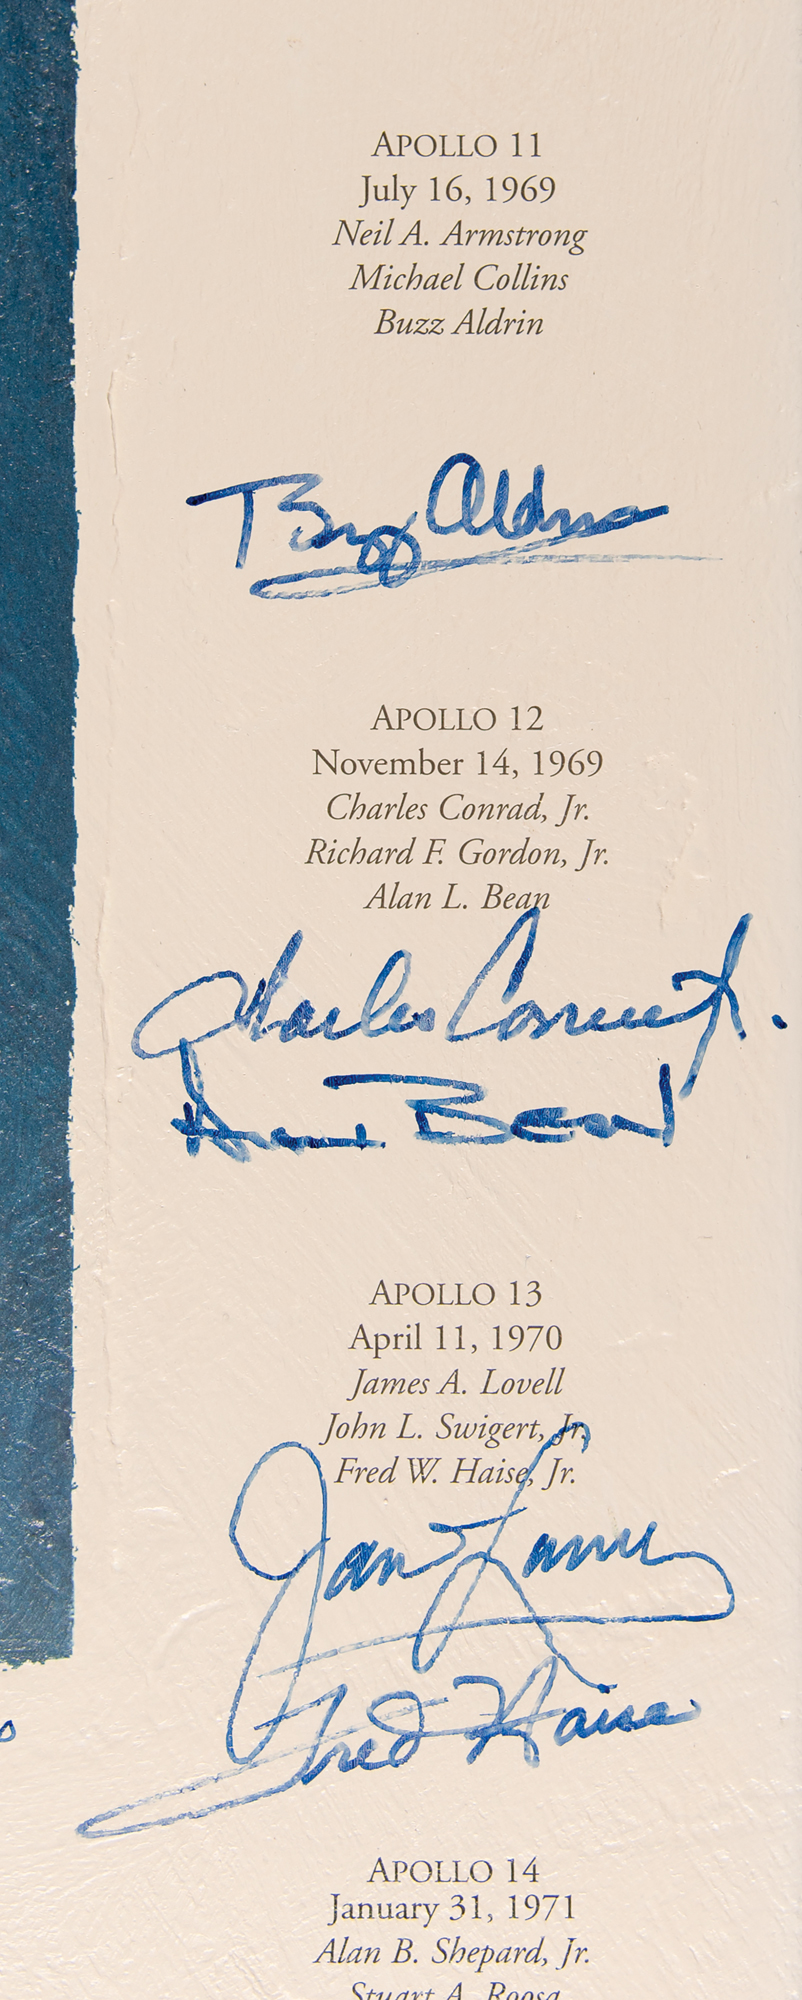 APOLLO 11
July 16, 1969
Neil A. Armstrong
Michael Collins
Buzz Aldrin
Buzz Aldrin
APOLLO 12
November 14, 1969
Charles Conrad, Jr.
Richard F. Gordon, Jr.
Alan L. Bean
Charles Conrad Jr.
Alan Bean
APOLLO 13
April 11, 1970
James A. Lovell
John L. Swigert, Jr.
Fred W. Haise, Jr.
James Lovell
Fred Haise
APOLLO 14
January 31, 1971
Alan B. Shepard, Jr.
Stuart A. Roosa